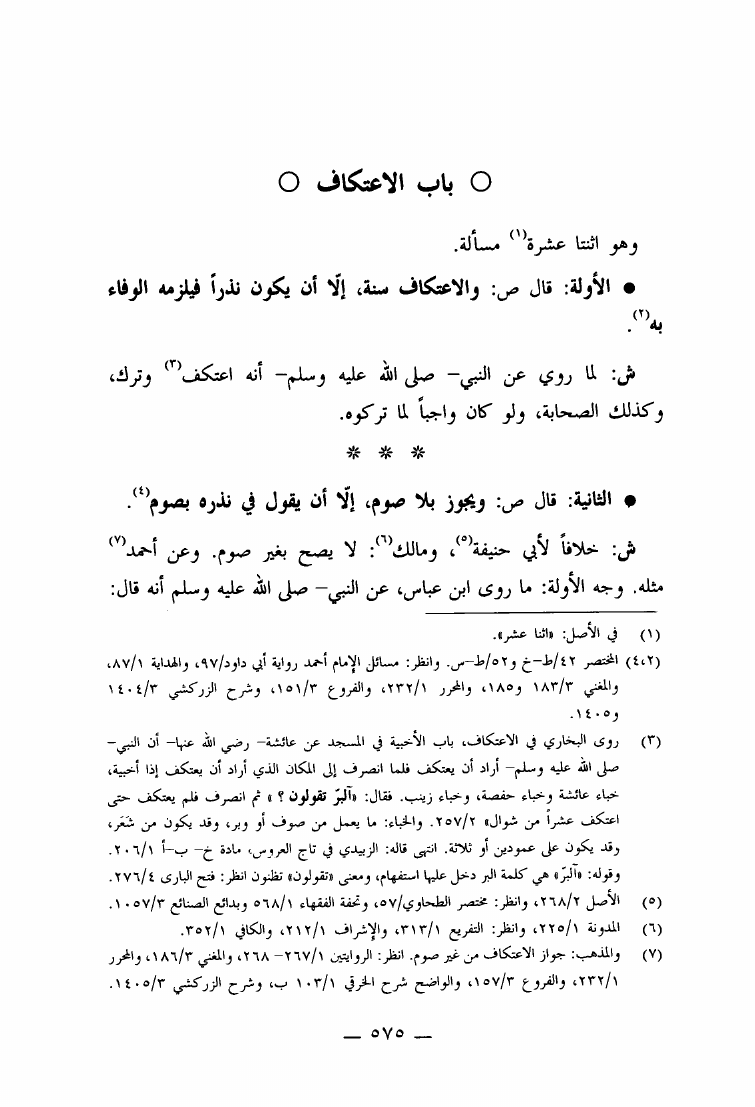 ○ باب الاعتكاف ○
وهو اثنتا عشرة(١) مسألة.
● الأولة: قال ص: والاعتكاف سنة، إلّا أن يكون نذراً فيلزمه الوفاء
به(٢).
ش: لما روي عن النبي– صلى الله عليه وسلم– أنه اعتكف(٣) وترك،
وكذلك الصحابة، ولو كان واجباً لما تركوه.
* * *
● الثانية: قال ص: ويجوز بلا صوم، إلّا أن يقول في نذره بصوم(٤).
ش: خلافاً لأبي حنيفة(٥)، ومالك(٦): لا يصح بغير صوم. وعن أحمد(٧)
مثله. وجه الأولة: ما روى ابن عباس، عن النبي– صلى الله عليه وسلم أنه قال:
(١) في الأصل: «اثنا عشر».
(٤،٢) المختصر ٤٢/ط–خ و٥٢/ط–س. وانظر: مسائل الإمام أحمد رواية أبي داود/٩٧، والهداية ٨٧/١،
والمغني ١٨٣/٣ و١٨٥، والمحرر ٢٣٢/١، والفروع ١٥١/٣، وشرح الزركشي ١٤٠٤/٣
و١٤٠٥.
(٣) روى البخاري في الاعتكاف، باب الأخبية في المسجد عن عائشة– رضي الله عنها– أن النبي–
صلى الله عليه وسلم– أراد أن يعتكف فلما انصرف إلى المكان الذي أراد أن يعتكف إذا أخبية،
خباء عائشة وخباء حفصة، وخباء زينب. فقال: «آلبرّ تقولون ؟ » ثم انصرف فلم يعتكف حتى
اعتكف عشراً من شوال» ٢٥٧/٢. والخباء: ما يعمل من صوف أو وبر، وقد يكون من شَعَر،
وقد يكون على عمودين أو ثلاثة. انتهى قاله: الزبيدي في تاج العروس، مادة خ– ب–أ ٢٠٦/١.
وقوله: «آلبرّ» هي كلمة البر دخل عليها استفهام، ومعنى «تقولون» تظنون انظر: فتح البارى ٢٧٦/٤.
(٥) الأصل ٢٦٨/٢، وانظر: مختصر الطحاوي/٥٧، وتحفة الفقهاء ٥٦٨/١ وبدائع الصنائع ١٠٥٧/٣.
(٦) المدونة ٢٢٥/١، وانظر: التفريع ٣١٣/١، والإشراف ٢١٢/١، والكافي ٣٥٢/١.
(٧) والمذهب: جواز الاعتكاف من غير صوم. انظر: الروايتين ٢٦٧/١– ٢٦٨، والمغني ١٨٦/٣، والمحرر
٢٣٢/١، والفروع ١٥٧/٣، والواضح شرح الخرقي ١٠٣/١ ب، وشرح الزركشي ١٤٠٥/٣.
— ٥٧٥ —